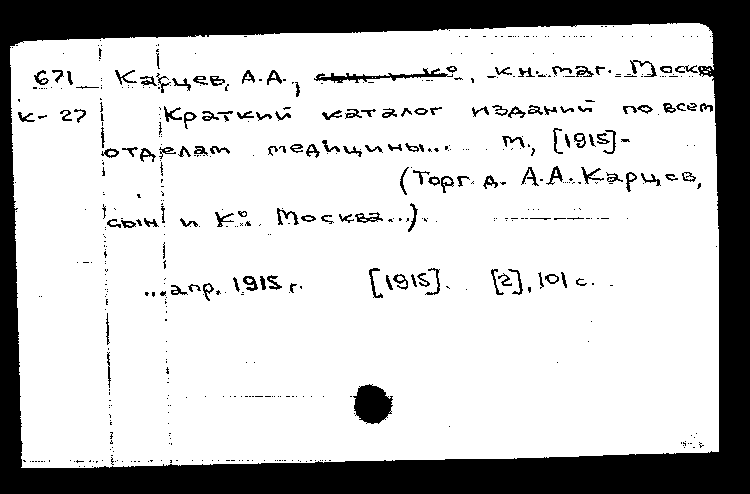 671 Карцев, А.А., сын и К°, кн. маг. Москва
К-27 Краткий каталог изданий по всем
отделам медицины... М., [1915]-
(Торг. д. А.А. Карцев,
сын и К°. Москва...).
...апр. 1915 г. [1915]. [2], 101 с.